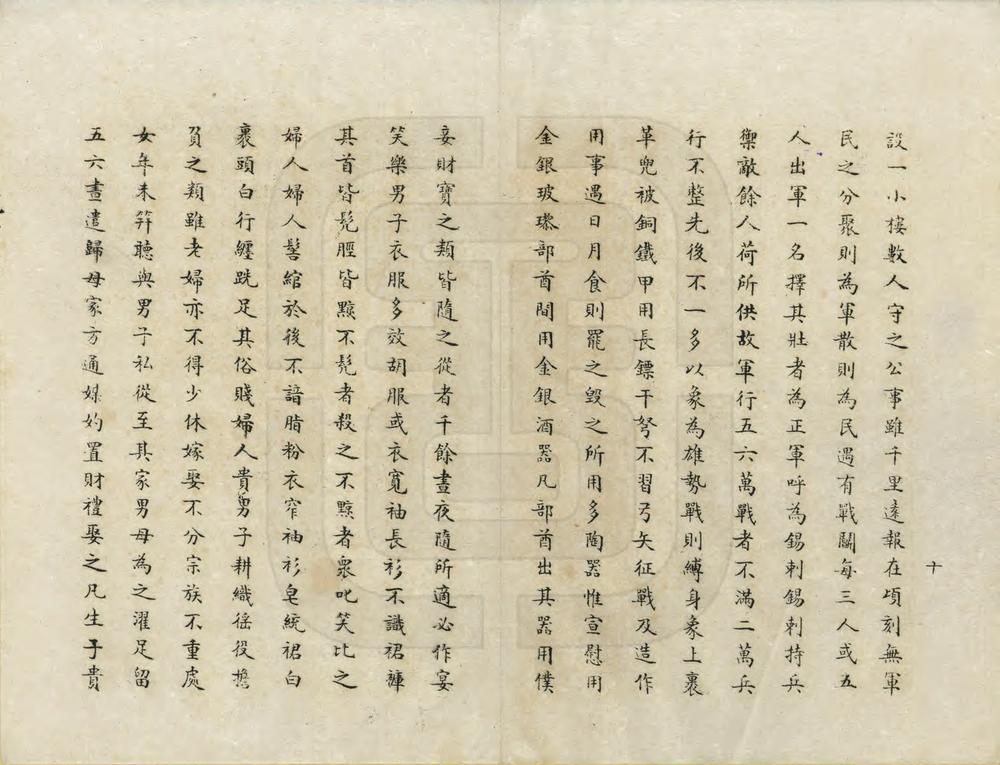 十
設一小樓數人守之公事雖千里遠報在頃刻無軍
民之分聚則為軍散則為民遇有戰鬬每三人或五
人出軍一名擇其壯者為正軍呼為錫剌錫剌持兵
禦敵餘人荷所供故軍行五六萬戰者不滿二萬兵
行不整先後不一多以象為雄勢戰則縛身象上裹
革兜被銅鐵甲用長鏢干弩不習弓矢征戰及造作
用事遇日月食則罷之毀之所用多陶器惟宣慰用
金銀玻瓈部酋間用金銀酒器凡部酋出其器用僕
妾財寶之類皆隨之從者千餘晝夜隨所適必作宴
笑樂男子衣服多效胡服或衣寬袖長衫不識裙褲
其首皆髡脛皆黥不髡者殺之不黥者衆叱笑比之
婦人婦人髻綰於後不諳脂粉衣窄袖衫皂統裙白
裹頭白行纏跣足其俗賤婦人貴男子耕織徭役擔
負之類雖老婦亦不得少休嫁娶不分宗族不重處
女年未筓聽與男子私從至其家男母為之濯足留
五六晝遣歸母家方通媒妁置財禮娶之凡生子貴